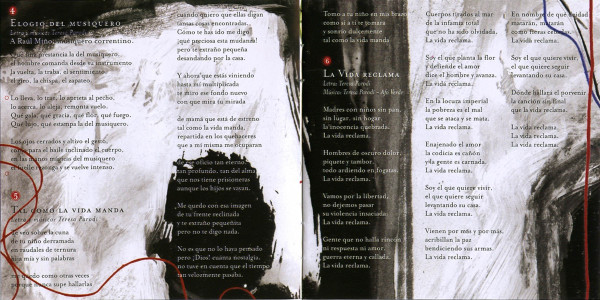 4
ELOGIO DEL MUSIQUERO
Letra y música: Teresa Parodi
A Raúl Miño, musiquero correntino.
presencia la del musiquero,
el hombre comanda desde su instrumento
la vuelta, la traba, el sentimiento,
el giro, la chispa, el zapateo.
Lo lleva, lo trae, lo aprieta al pecho,
lo acerca, lo aleja, remonta vuelo.
Qué gala, qué gracia, qué flor, qué fuego.
Qué lujo, qué estampa la del musiquero.
Los ojos cerrados y altivo el gesto,
para el baile inclinado el cuerpo,
en las manos mágicas del musiquero
el fuelle rezonga y se vuelve intenso.
5
TAL COMO LA VIDA MANDA
Letra y música: Teresa Parodi
Te ven sobre la cuna
de tu niño derramada
en raudales de ternura
mía y sin palabras
me quedo como otras veces
porque nunca supe hallarlas
cuando quiero que ellas digan
tantas cosas encontradas.
Cómo te has ido me digo
¡qué preciosa esta mudanza!
pero te extraño pequeña
desandando por la casa.
Y ahora que estás viniendo
hasta mí multiplicada
te diré ese fondo nuevo
con que mira tu mirada
de mamá que está de estreno
tal como la vida manda,
repartida en los quehaceres
que a mí misma me ocuparan
ese oficio tan eterno,
tan profundo, tan del alma
que nos tiene prisioneras
aunque los hijos se vayan.
Me quedo con esa imagen
de tu frente reclinada
y te extraño pequeñita
pero no te digo nada.
No es que no lo haya pensado
pero ¡Dios! cuánta nostalgia,
no tuve en cuenta que el tiempo
tan velozmente pasaba.
Tomo a tu niño en mis brazos
como si a ti te tomara
y sonrío dulcemente
tal como la vida manda
6
LA VIDA RECLAMA
Letra: Teresa Parodi
Música: Teresa Parodi - Afo Verde
Madres con niños sin pan,
sin lugar, sin hogar
la inocencia quebrada.
La vida reclama.
Hombres de oscuro dolor,
piquete y tambor,
todo ardiendo en fogatas.
La vida reclama.
Vamos por la libertad,
no dejemos pasar
su violencia insaciada.
La vida reclama.
Gente que no halla rincón
ni respuesta ni amor,
guerra eterna y callada.
La vida reclama.
Cuerpos tirados al mar
de la infamia total
que no ha sido olvidada.
La vida reclama.
Soy el que planta la flor
y defiende el amor
dice el hombre y avanza.
La vida reclama.
En la locura imperial
la pobreza es el mal
que se ataca y se mata.
La vida reclama.
Enajenado el amor
la codicia es cañón
y la gente es carnada.
La vida reclama.
Soy el que quiere vivir,
el que quiere seguir
levantando su casa.
La vida reclama.
Vienen por más y por más,
acribillan la paz
bendiciendo sus armas.
La vida reclama.
En nombre de qué deidad
matarán, matarán
como fieras cebadas.
La vida reclama.
Soy el que quiere vivir,
el que quiere seguir
levantando su casa.
Dónde hallará el porvenir
la canción sin final
que la vida reclama.
La vida reclama.
La vida reclama.
La vida reclama.